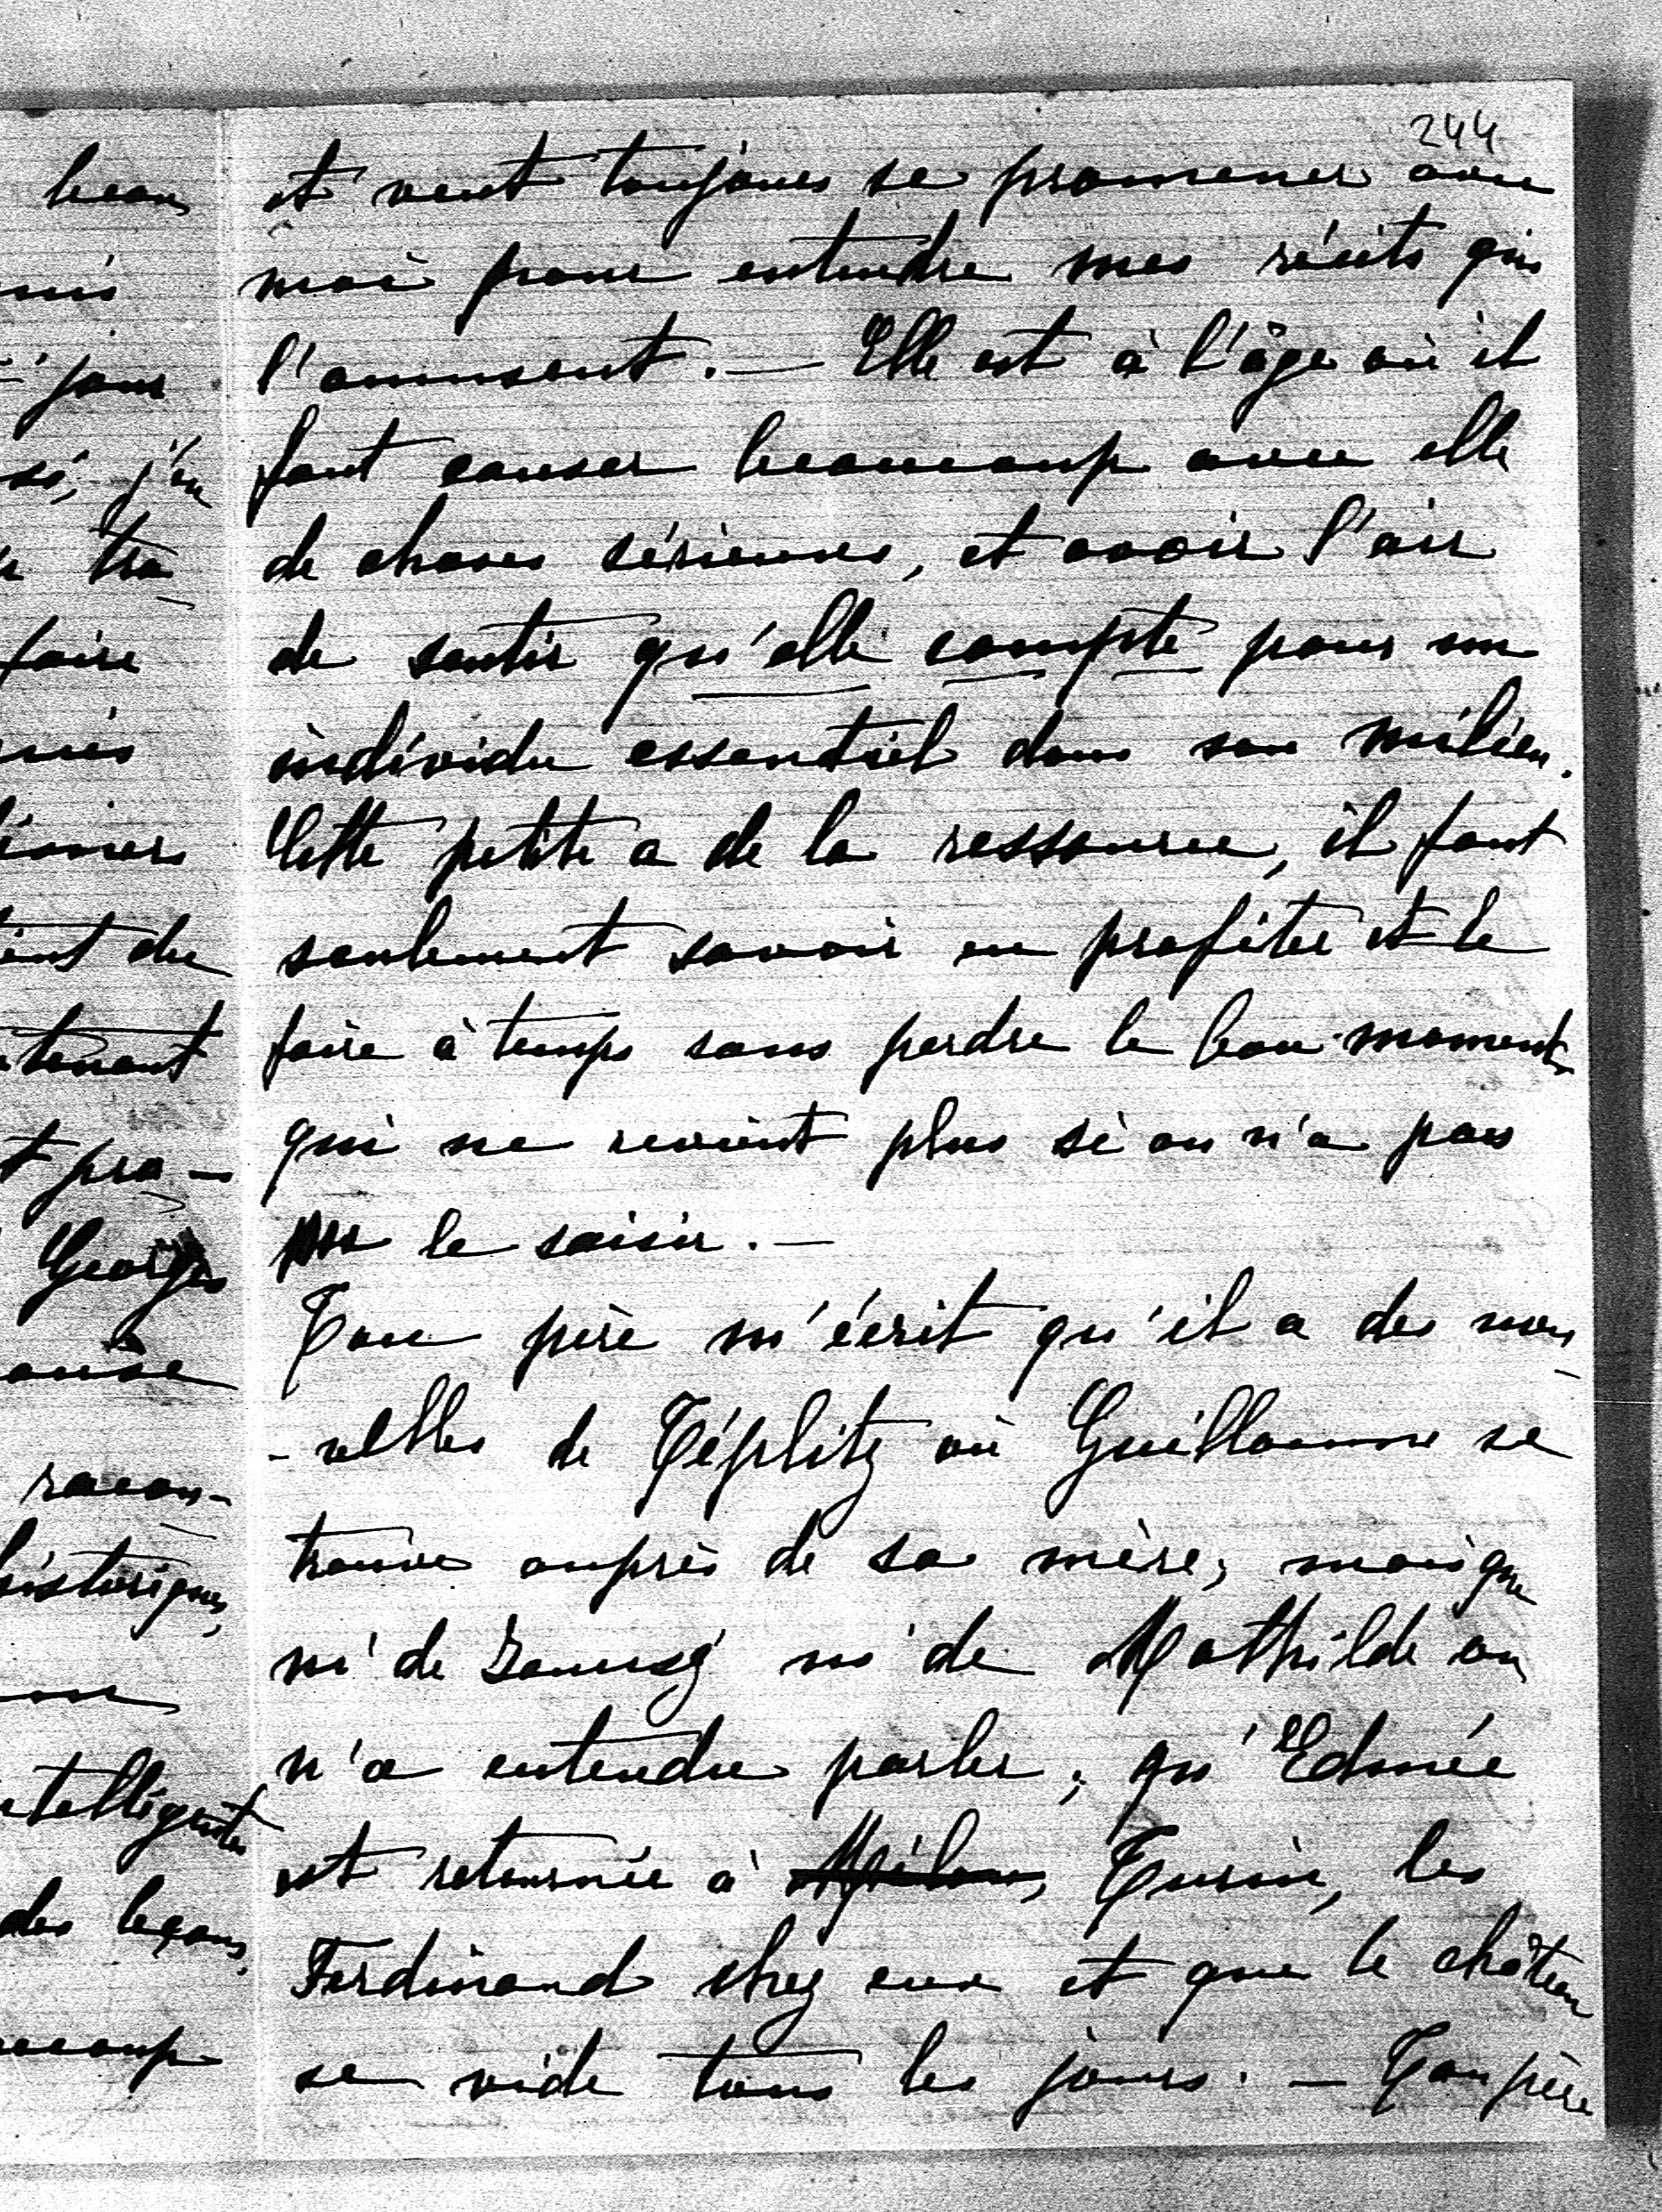 244
et veut toujours se promener avec
moi pour entendre mes récits qui
l'amusent. — Elle est à l'âge où il
faut causer beaucoup avec elle
de choses sérieuses, et avoir l'air
de sentir qu'elle compte pour un
individu essentiel dans son milieu.
Cette petite a de la ressource, il faut
seulement savoir en profiter et le
faire à temps sans perdre le bon moment
qui ne revient plus si on n'a pas
pu le saisir. —
Ton père m'écrit qu'il a des nou-
-velles de Téplitz où Guillaume se
trouve auprès de sa mère, mais que
ni de ni de Mathilde on
n'a entendu parler, qu'Edmée
est retournée à Milan, Turin, les
Ferdinand chez eux et que le château
se vide tous les jours. — Ton père
beau
jour
sé, j'en
tra
faire
tenant
t pro-
Georges
racon-
historiques,
des leçons,